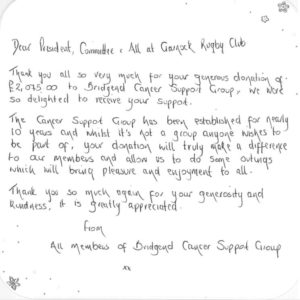 Dear President, Committee & All at Garnock Rugby Club
Thank you all so very much for your generous donation of
£2,075.00 to Bridgend Cancer Support Group, we were
so delighted to receive your support.
The Cancer Support Group has been established for nearly
10 years and whilst it's not a group anyone wishes to
be part of, your donation will truly make a difference
to our members and allow us to do some outings
which will bring pleasure and enjoyment to all.
Thank you so much again for your generosity and
kindness, it is greatly appreciated.
from
All members of Bridgend Cancer Support Group
xx